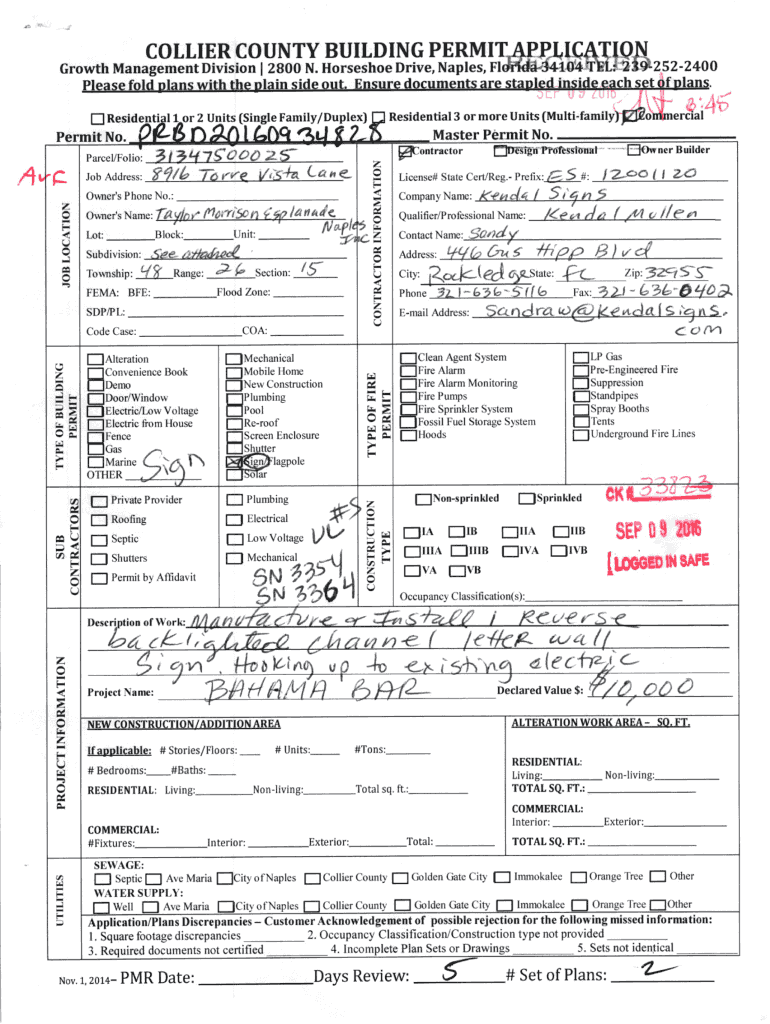 COLLIER COUNTY BUILDING PERMIT APPLICATION
Growth Management Division | 2800 N. Horseshoe Drive, Naples, Florida 34104 TEL: 239-252-2400
Please fold plans with the plain side out. Ensure documents are stapled inside each set of plans.
SEP 09 2016
3:45
Residential 1 or 2 Units (Single Family/Duplex) Residential 3 or more Units (Multi-family) Commercial
Permit No. PRBD20160934828 Master Permit No.
JOB LOCATION
Parcel/Folio: 31347500025
Job Address: 8916 Torre Vista Lane
Owner's Phone No.:
Owner's Name: Taylor Morrison Esplanade Naples Inc
Lot: Block: Unit:
Subdivision: See attached
Township: 48 Range: 26 Section: 15
FEMA: BFE: Flood Zone:
SDP/PL:
Code Case: COA:
CONTRACTOR INFORMATION
Contractor Design Professional Owner Builder
License# State Cert/Reg.- Prefix: ES #: 12001120
Company Name: Kendal Signs
Qualifier/Professional Name: Kendal Mullen
Contact Name: Sandy
Address: 446 Gus Hipp Blvd
City: Rockledge State: FL Zip: 32955
Phone 321-636-5116 Fax: 321-636-0402
E-mail Address: Sandraw@Kendalsigns.com
TYPE OF BUILDING PERMIT
Alteration
Convenience Book
Demo
Door/Window
Electric/Low Voltage
Electric from House
Fence
Gas
Marine
OTHER Sign
Mechanical
Mobile Home
New Construction
Plumbing
Pool
Re-roof
Screen Enclosure
Shutter
Sign/Flagpole
Solar
TYPE OF FIRE PERMIT
Clean Agent System
Fire Alarm
Fire Alarm Monitoring
Fire Pumps
Fire Sprinkler System
Fossil Fuel Storage System
Hoods
LP Gas
Pre-Engineered Fire
Suppression
Standpipes
Spray Booths
Tents
Underground Fire Lines
SUB CONTRACTORS
Private Provider
Roofing
Septic
Shutters
Permit by Affidavit
Plumbing
Electrical
Low Voltage
Mechanical
UL #S
SN 3354
SN 3364
CONSTRUCTION TYPE
Non-sprinkled Sprinkled
IA IB IIA IIB
IIIA IIIB IVA IVB
VA VB
Occupancy Classification(s):
CK# 33823
SEP 09 2016
LOGGED IN SAFE
PROJECT INFORMATION
Description of Work: Manufacture or Install 1 Reverse
backlighted channel letter wall
Sign. Hooking up to existing electric
Project Name: BAHAMA BAR Declared Value $: $10,000
NEW CONSTRUCTION/ADDITION AREA
If applicable: # Stories/Floors: # Units: #Tons:
# Bedrooms: #Baths:
RESIDENTIAL: Living: Non-living: Total sq. ft.:
COMMERCIAL:
#Fixtures: Interior: Exterior: Total:
ALTERATION WORK AREA – SQ. FT.
RESIDENTIAL:
Living: Non-living:
TOTAL SQ. FT.:
COMMERCIAL:
Interior: Exterior:
TOTAL SQ. FT.:
UTILITIES
SEWAGE:
Septic Ave Maria City of Naples Collier County Golden Gate City Immokalee Orange Tree Other
WATER SUPPLY:
Well Ave Maria City of Naples Collier County Golden Gate City Immokalee Orange Tree Other
Application/Plans Discrepancies – Customer Acknowledgement of possible rejection for the following missed information:
1. Square footage discrepancies 2. Occupancy Classification/Construction type not provided
3. Required documents not certified 4. Incomplete Plan Sets or Drawings 5. Sets not identical
Nov. 1, 2014– PMR Date: Days Review: 5 # Set of Plans: 2